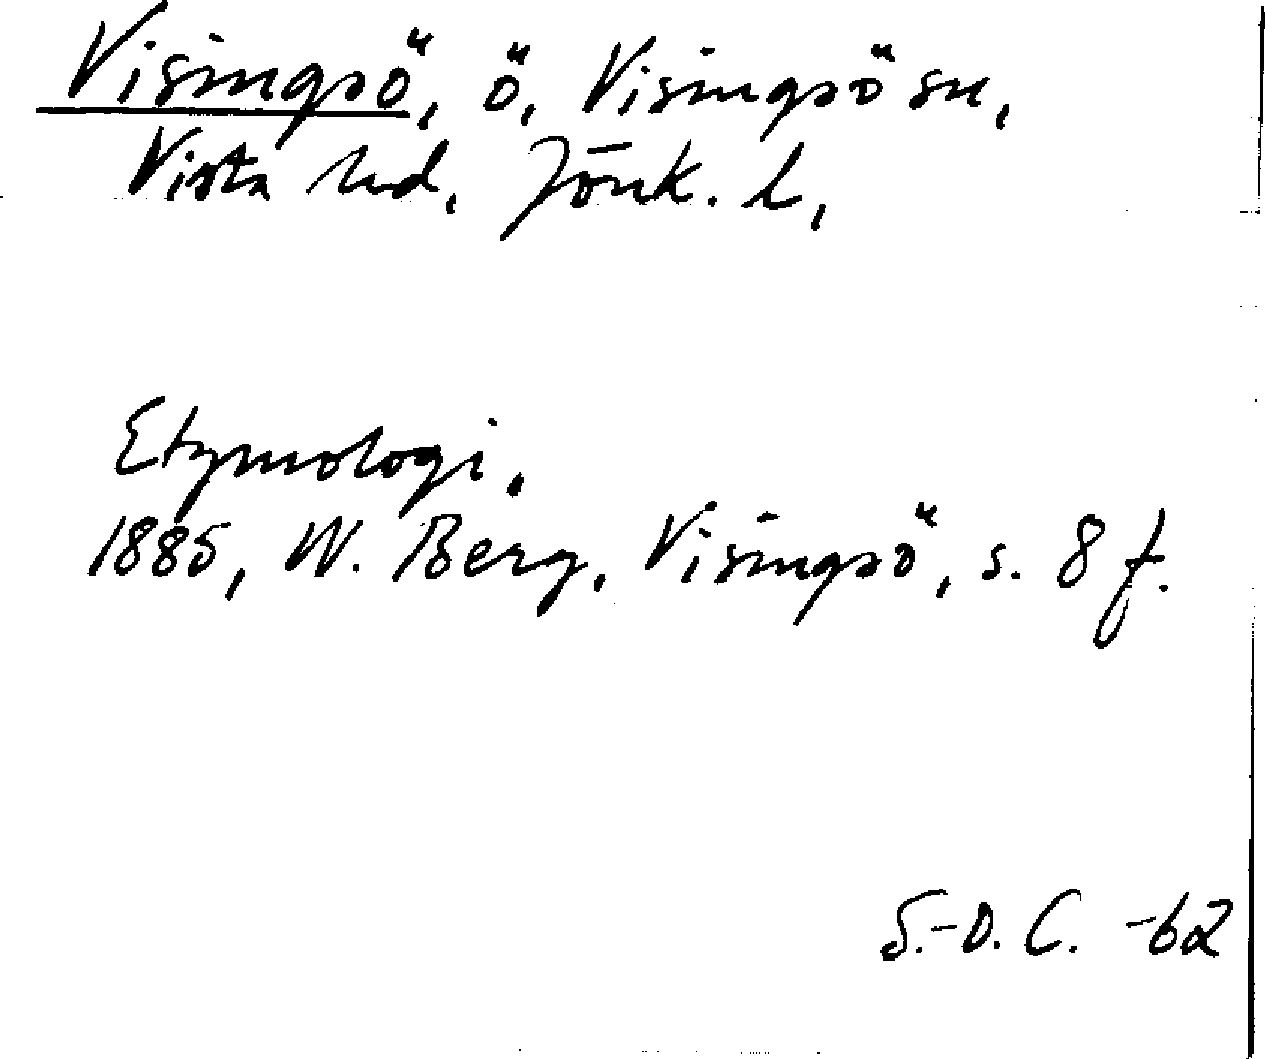 Visingsö, ö, Visingsö sn,
Vista hd, Jönk. l,
Etymologi.
1885, W. Berg, Visingsö, s. 8 f.
S.-O. C. -62